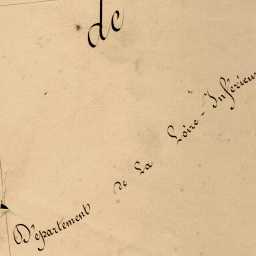 de
Département de La Loire-Inférieu